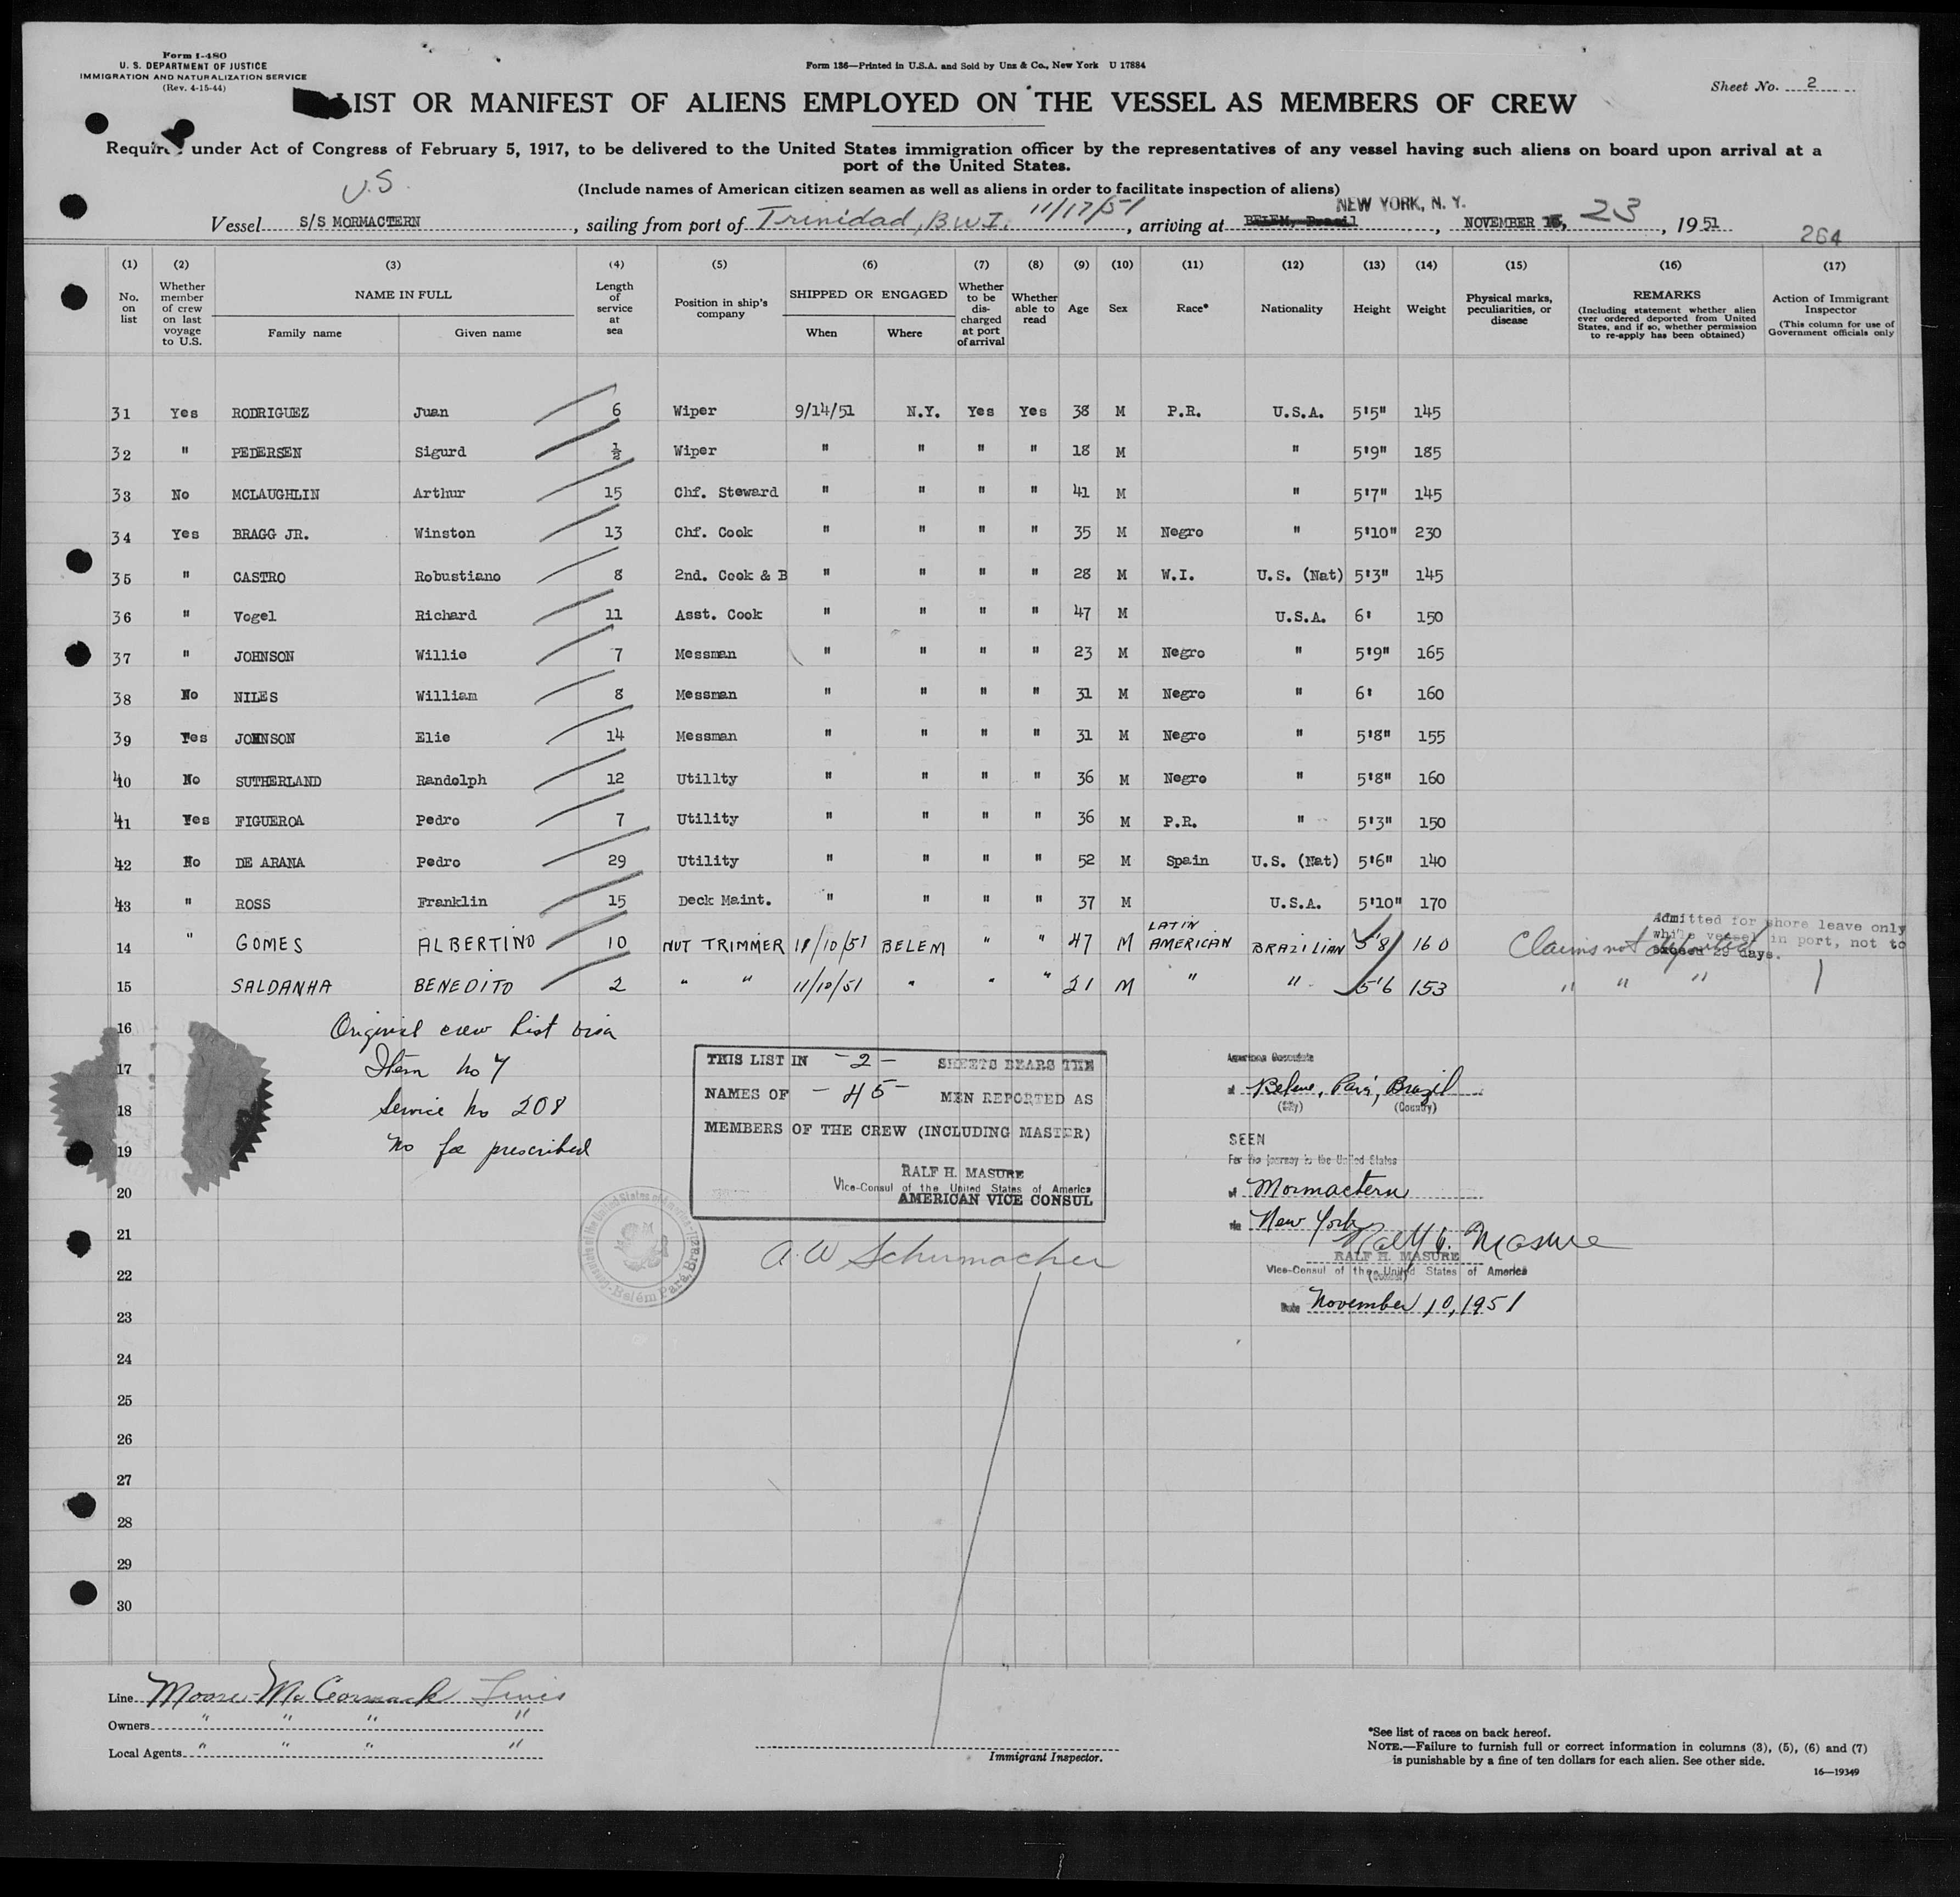 Form I-480
U. S. DEPARTMENT OF JUSTICE
IMMIGRATION AND NATURALIZATION SERVICE
(Rev. 4-15-44)
Form 136—Printed in U.S.A. and Sold by Unz & Co., New York U 17884
Sheet No. 2
LIST OR MANIFEST OF ALIENS EMPLOYED ON THE VESSEL AS MEMBERS OF CREW
under Act of Congress of February 5, 1917, to be delivered to the United States immigration officer by the representatives of any vessel having such aliens on board upon arrival at a
port of the United States.
(Include names of American citizen seamen as well as aliens in order to facilitate inspection of aliens)
U.S.
NEW YORK, N. Y.
Vessel S/S MORMACTERN , sailing from port of Trinidad, B.W.I. 11/17/51 , arriving at BELEM, Brazil , NOVEMBER 23 , 1951
264
(1) (2) (3) (4) (5) (6) (7) (8) (9) (10) (11) (12) (13) (14) (15) (16) (17)
No. on list
Whether member of crew on last voyage to U.S.
NAME IN FULL
Family name Given name
Length of service at sea
Position in ship's company
SHIPPED OR ENGAGED
When Where
Whether to be discharged at port of arrival
Whether able to read
Age
Sex
Race*
Nationality
Height
Weight
Physical marks, peculiarities, or disease
REMARKS
(Including statement whether alien ever ordered deported from United States, and if so, whether permission to re-apply has been obtained)
Action of Immigrant Inspector
(This column for use of Government officials only
31 Yes RODRIGUEZ Juan 6 Wiper 9/14/51 N.Y. Yes Yes 38 M P.R. U.S.A. 5'5" 145
32 " PEDERSEN Sigurd ½ Wiper " " " " 18 M " 5'9" 185
33 No MCLAUGHLIN Arthur 15 Chf. Steward " " " " 41 M " 5'7" 145
34 Yes BRAGG JR. Winston 13 Chf. Cook " " " " 35 M Negro " 5'10" 230
35 " CASTRO Robustiano 8 2nd. Cook & B " " " " 28 M W.I. U.S. (Nat) 5'3" 145
36 " Vogel Richard 11 Asst. Cook " " " " 47 M U.S.A. 6' 150
37 " JOHNSON Willie 7 Messman " " " " 23 M Negro " 5'9" 165
38 No NILES William 8 Messman " " " " 31 M Negro " 6' 160
39 Yes JOHNSON Elie 14 Messman " " " " 31 M Negro " 5'8" 155
40 No SUTHERLAND Randolph 12 Utillty " " " " 36 M Negro " 5'8" 160
41 Yes FIGUEROA Pedro 7 Utility " " " " 36 M P.R. " 5'3" 150
42 No DE ARANA Pedro 29 Utility " " " " 52 M Spain U.S. (Nat) 5'6" 140
43 " ROSS Franklin 15 Deck Maint. " " " " 37 M U.S.A. 5'10" 170
Admitted for shore leave only
while vessel in port, not to
exceed 29 days.
14 " GOMES ALBERTINO 10 NUT TRIMMER 11/10/51 BELEM " " 47 M LATIN AMERICAN BRAZILIAN 5'8 160 Claims not deported
15 SALDANHA BENEDITO 2 " " 11/10/51 " " " 21 M " " 5'6 153 " " "
16 Original crew list visa
17 Item no 7
18 Service no 208
19 No fee prescribed
20
21
22
23
24
25
26
27
28
29
30
THIS LIST IN -2- SHEETS BEARS THE
NAMES OF -45- MEN REPORTED AS
MEMBERS OF THE CREW (INCLUDING MASTER)
RALF H. MASURE
Vice-Consul of the United States of America
AMERICAN VICE CONSUL
A. W Schumacher
American Consulate
at Belem, Pará, Brazil
(City) (Country)
SEEN
For the journey to the United States
of Mormactern
via New York
Ralf H. Masure
RALF H. MASURE
Vice-Consul of the United States of America
(Consul)
Date November 10, 1951
Line Moore-McCormack Lines
Owners " " " "
Local Agents " " " "
Immigrant Inspector.
*See list of races on back hereof.
NOTE.—Failure to furnish full or correct information in columns (3), (5), (6) and (7)
is punishable by a fine of ten dollars for each alien. See other side.
16—19349